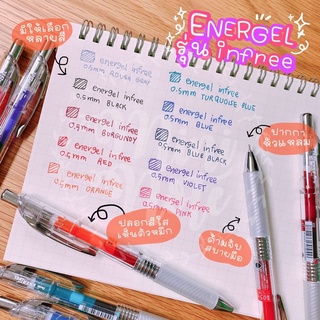 ENERGEL
รุ่น infree
มีให้เลือก
หลายสี
energel infree
0.5mm ROUGE GRAY
energel infree
0.5mm BLACK
energel infree
0.5mm BURGUNDY
energel infree
0.5mm RED
energel infree
0.5mm ORANGE
energel infree
0.5mm TURQUOISE BLUE
energel infree
0.5mm BLUE
energel infree
0.5mm BLUE BLACK
energel infree
0.5mm VIOLET
energel infree
PINK
ปากกา
หัวแหลม
ปลอกสีใส
เห็นตัวหมึก
ด้ามจับ
สบายมือ